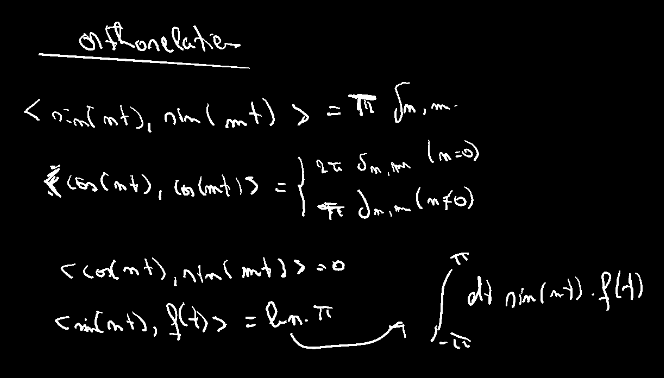 orthorelation
< sin(nt), sin(mt) > = π δn,m.
<cos(nt), cos(mt)> = { 2π δn,m (n=0)
π δn,m (n≠0)
<cos(nt), sin(mt)> = 0
<sin(nt), f(t)> = bn.π
∫ -π π dt sin(nt).f(t)